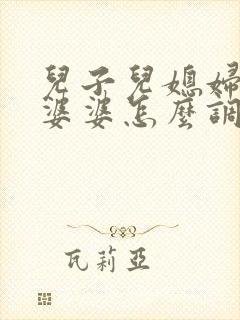 兒子兒媳婦
婆婆怎麼調
瓦莉亞